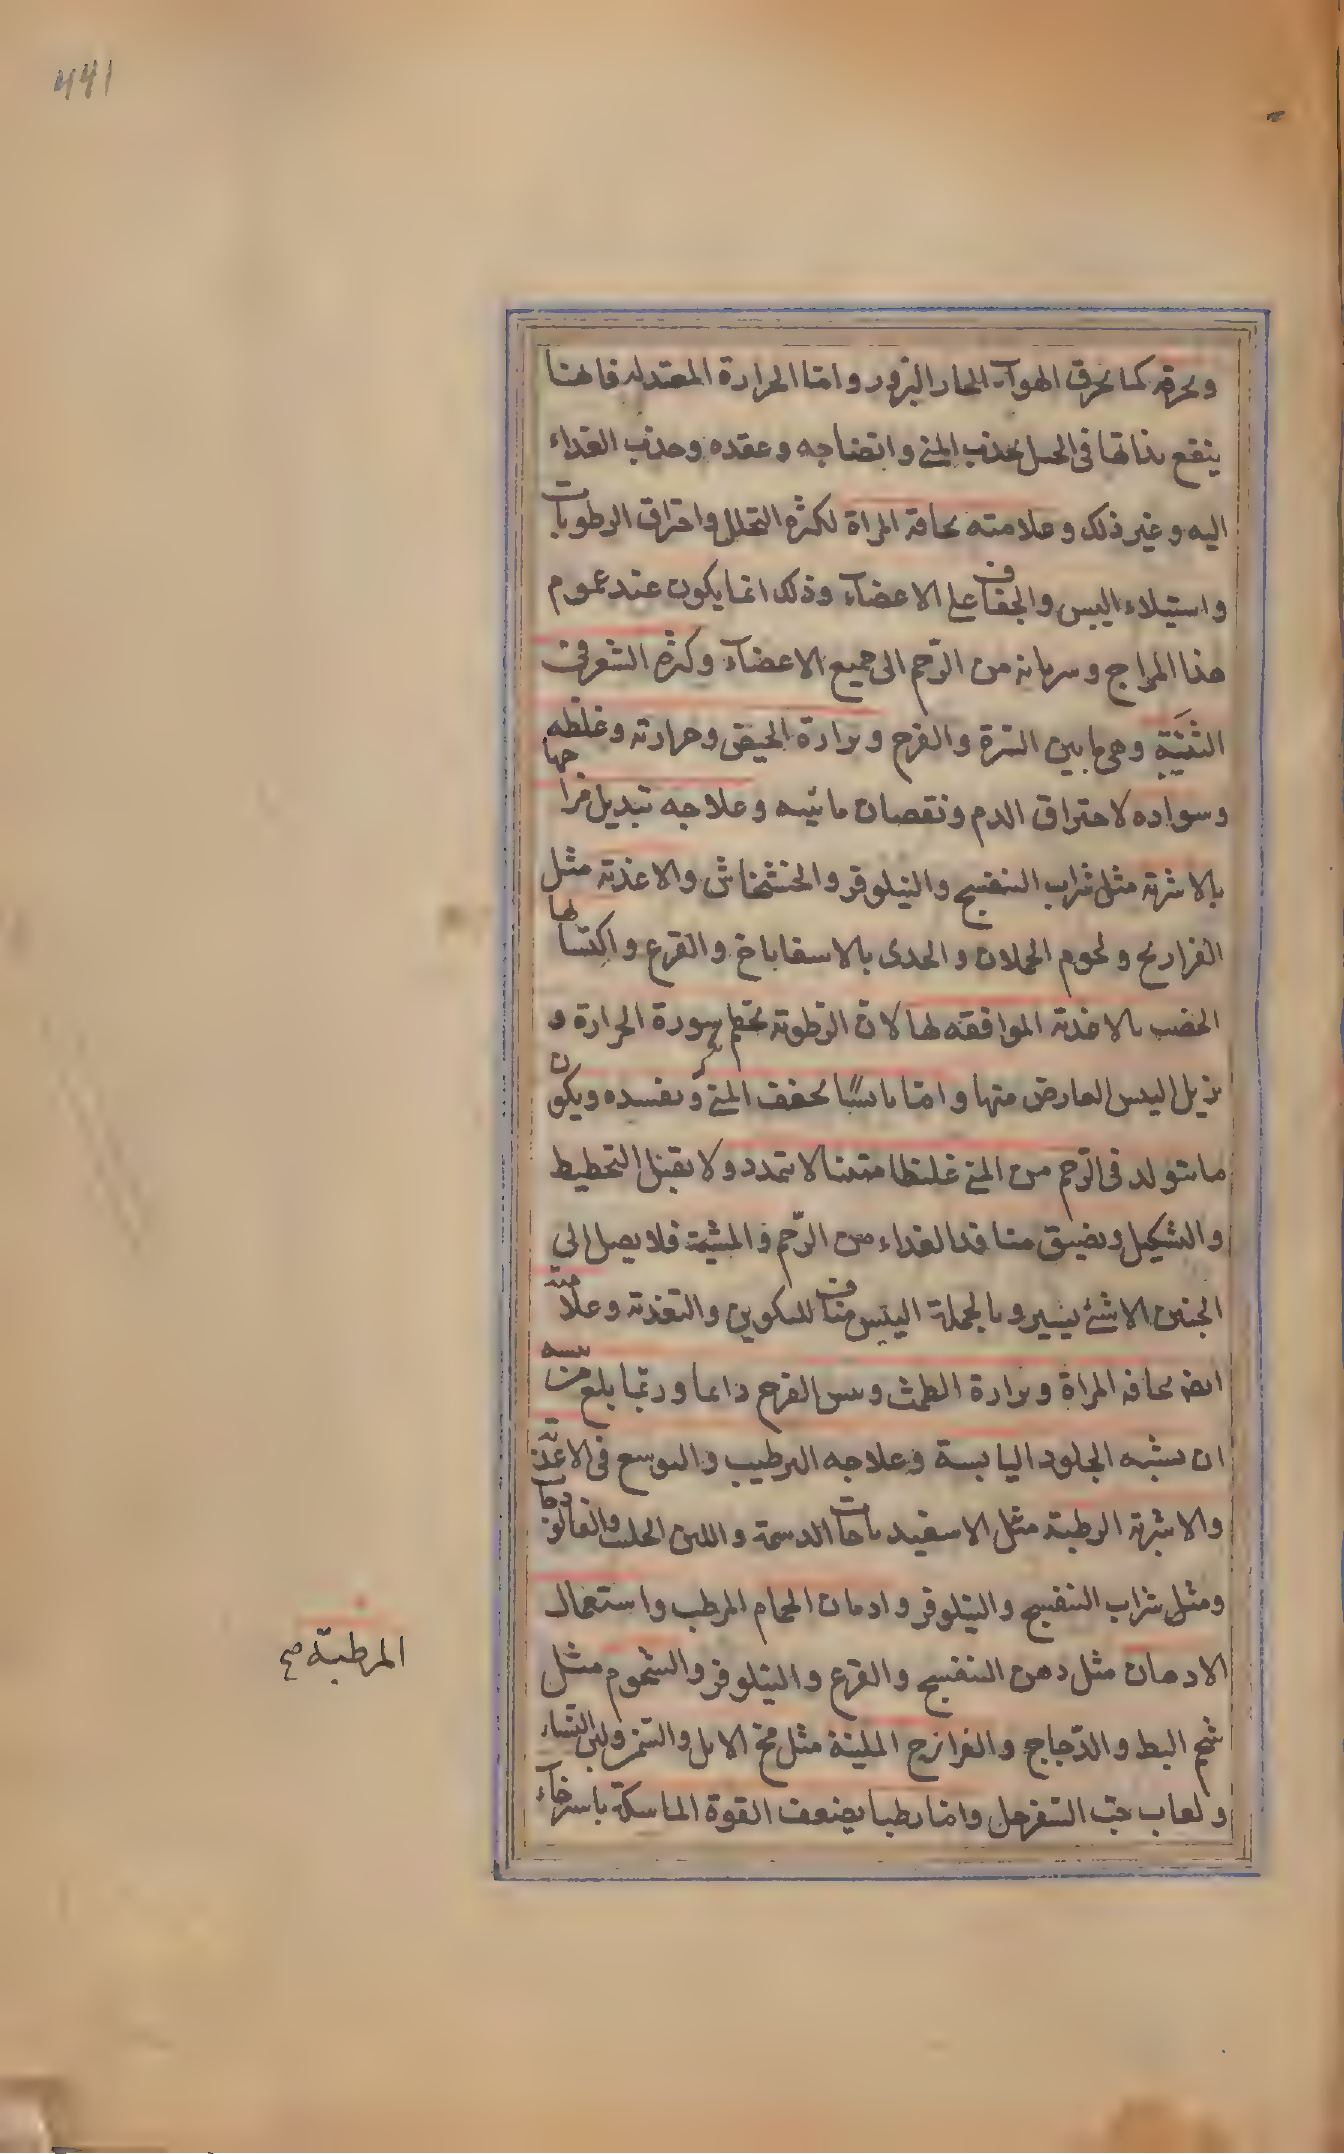 441
ويحرقه كما يحرق الهواء الحار البزور واما الحرارة المعتدلة فانها
ينفع بذاتها فى الحبل بجذب المنى وانضاجه وعقده وجذب الغذاء
اليه وغير ذلك وعلامته نحافة المراة لكثرة التحلل واحتراق الرطوبات
واستيلاء اليبس والجفاف على الاعضاء وذلك انما يكون عند عموم
هذا المزاج وسريانه من الرّحم الى جميع الاعضاء وكثرة الشعر فى
الثنيّة وهى ما بين السّرة والفرج وبرادة الحيض وحرارته وغلظه
وسواده لاحتراق الدم ونقصان مائيته وعلاجه تبديل مزاجها
بالاشربة مثل شراب البنفسج والنيلوفر والخشخاش والاغذية مثل
الفراريج ولحوم الحملان والجدى بالاسفاناخ والقرع واكتسابها
الخصب بالاغذية الموافقة لها لان الرّطوبة تحطم سورة الحرارة و
يزيل اليبس العارض منها واما يابسًا يجفف المنى ويفسده ويكون
ما يتولد فى الرّحم من المنى غليظا متينا لا يتمدد ولا يقبل التخطيط
والتشكيل ويضيق منافذ الغذاء من الرّحم والمشيمة فلا يصل الى
الجنين الا شئ يسير وبالجملة اليبس مناف للتكوين والتغذية وعلامته
ايضا نحافة المراة وبرادة الطمث ويبس الفرج دائما وربّما بلغ من يبسه
ان يشبه الجلود اليابسة وعلاجه الترطيب والتوسع فى الاغذية
والاشربة الرطبة مثل الاسفيدباجات الدسمة واللبن الحليب والفالوذجات
ومثل شراب البنفسج والنيلوفر وادمان الحمام المرطب واستعمال
الادهان مثل دهن البنفسج والقرع والنيلوفر والشحوم مثل
شحم البط والدّجاج والفرازج الملينة مثل مخ الابل والسّمن ولبن النساء
ولعاب حبّ السّفرجل واما رطبا يضعف القوة الماسكة باسترخاء
المرطبّة صح